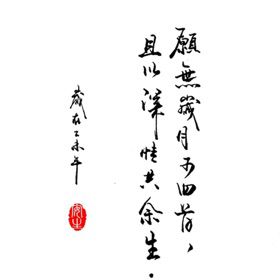 願無歲月可回首、
且以深情共余生.
歲在乙未年